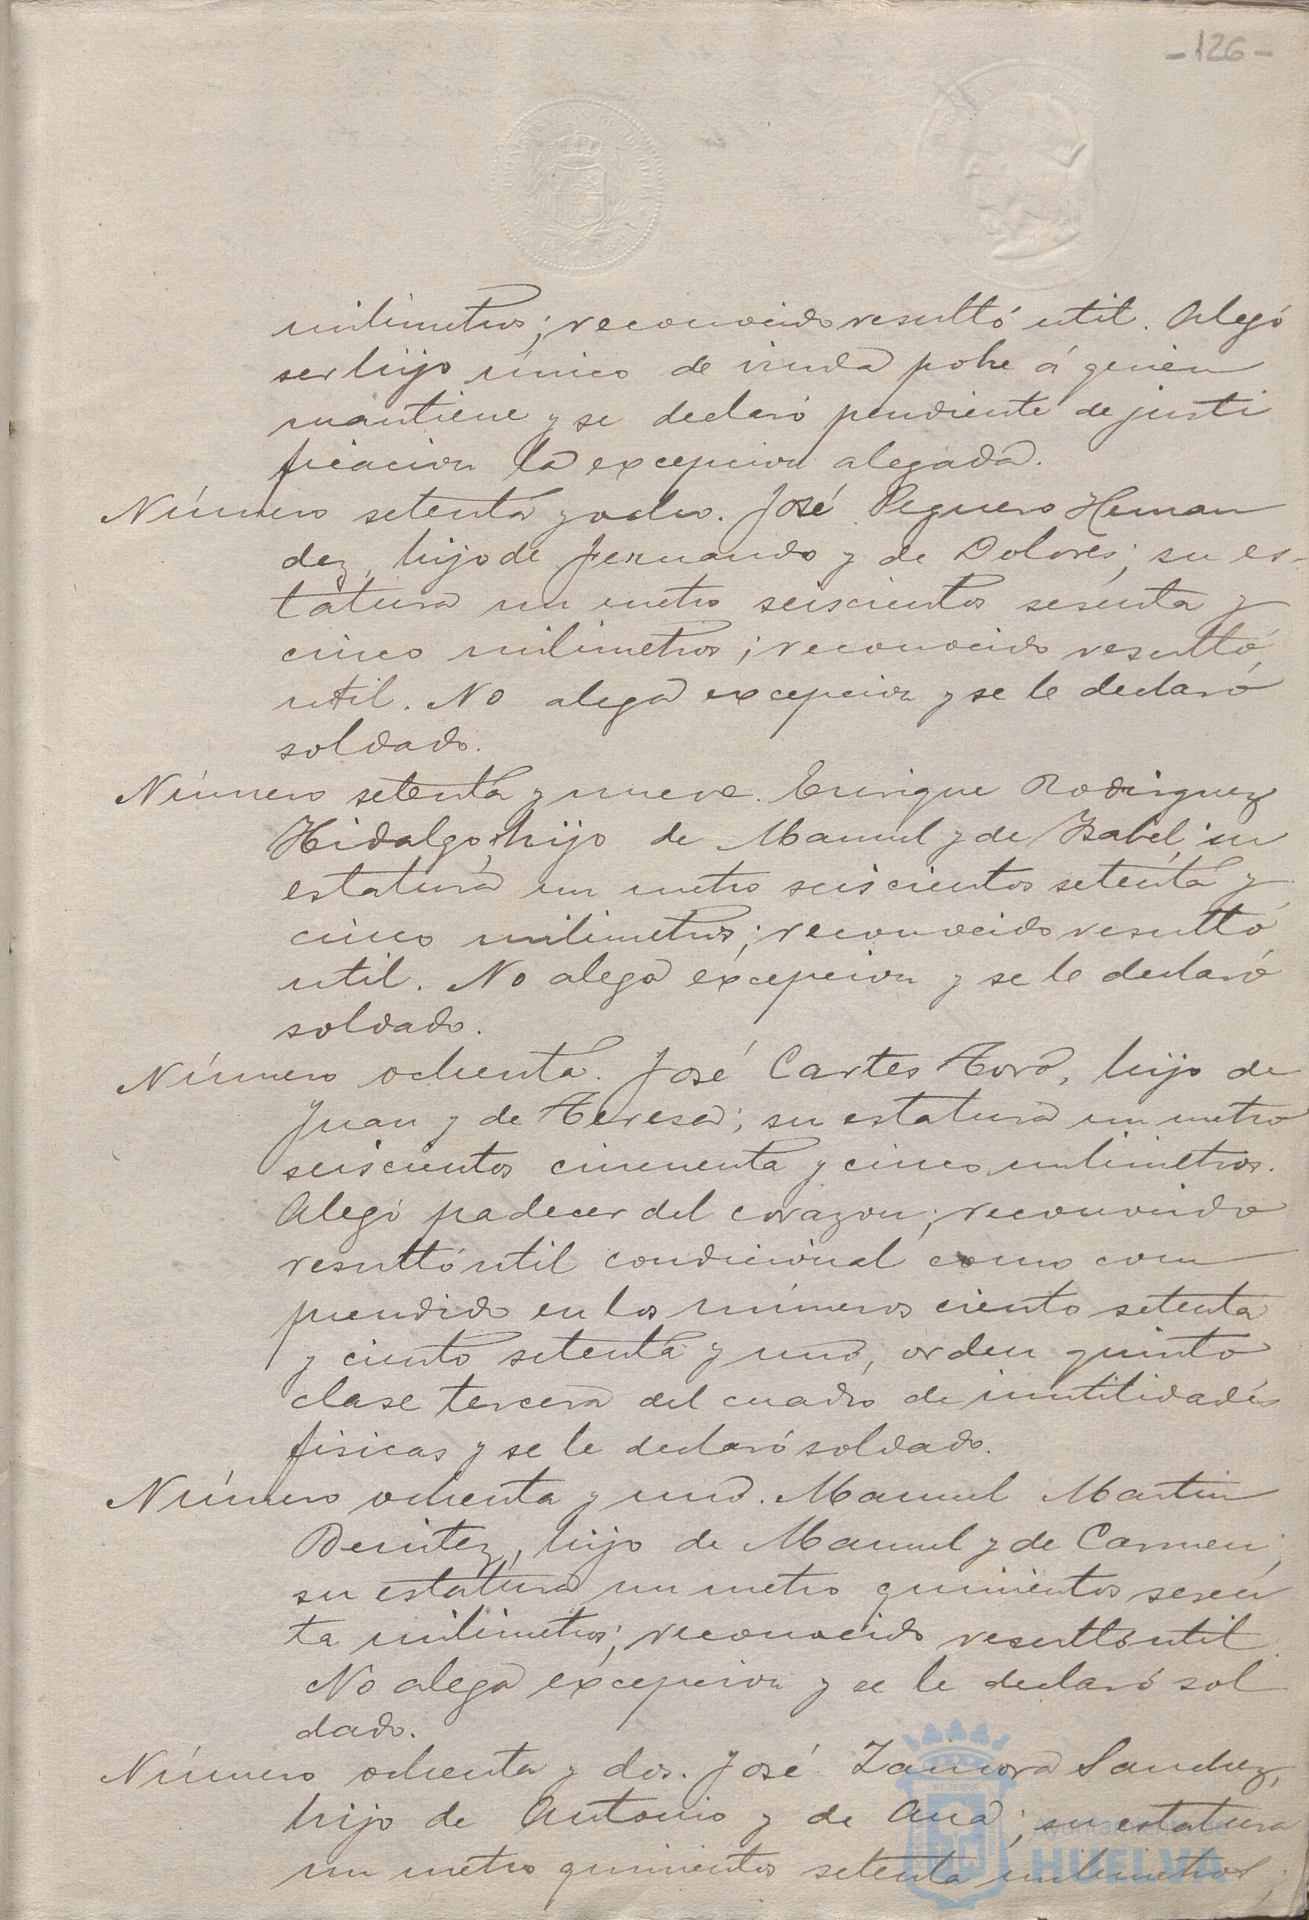 -126-
milimetros; reconocido resultó util. Alegó
ser hijo único de viuda pobre á quien
mantiene y se declaró pendiente de justi
ficacion la excepcion alegada.
Número setenta y ocho. José Peguero Hernan
dez, hijo de Fernando y de Dolores; su es-
tatura un metro seiscientos sesenta y
cinco milimetros; reconocido resultó
util. No alega excepcion y se le declaró
soldado.
Número setenta y nueve. Enrique Rodriguez
Hidalgo, hijo de Manuel y de Isabel, su
estatura un metro seiscientos setenta y
cinco milimetros; reconocido resultó
util. No alega excepcion y se le declaró
soldado.
Número ochenta. José Cartes Toro, hijo de
Juan y de Teresa; su estatura un metro
seiscientos cincuenta y cinco milimetros.
Alegó padecer del corazon; reconocido
resultó util condicional como com
prendido en los números ciento setenta
y ciento setenta y uno, orden quinto
clase tercera del cuadro de inutilidades
fisicas y se le declaró soldado.
Número ochenta y uno. Manuel Martin
Benitez, hijo de Manuel y de Carmen;
su estatura un metro quinientos sesen
ta milimetros; reconocido resultó util
No alega excepcion y se le declaró sol
dado.
Número ochenta y dos. José Zamora Sanchez,
hijo de Antonio y de Ana; su estatura
un metro quinientos setenta milimetros;
Ayuntamiento de
HUELVA